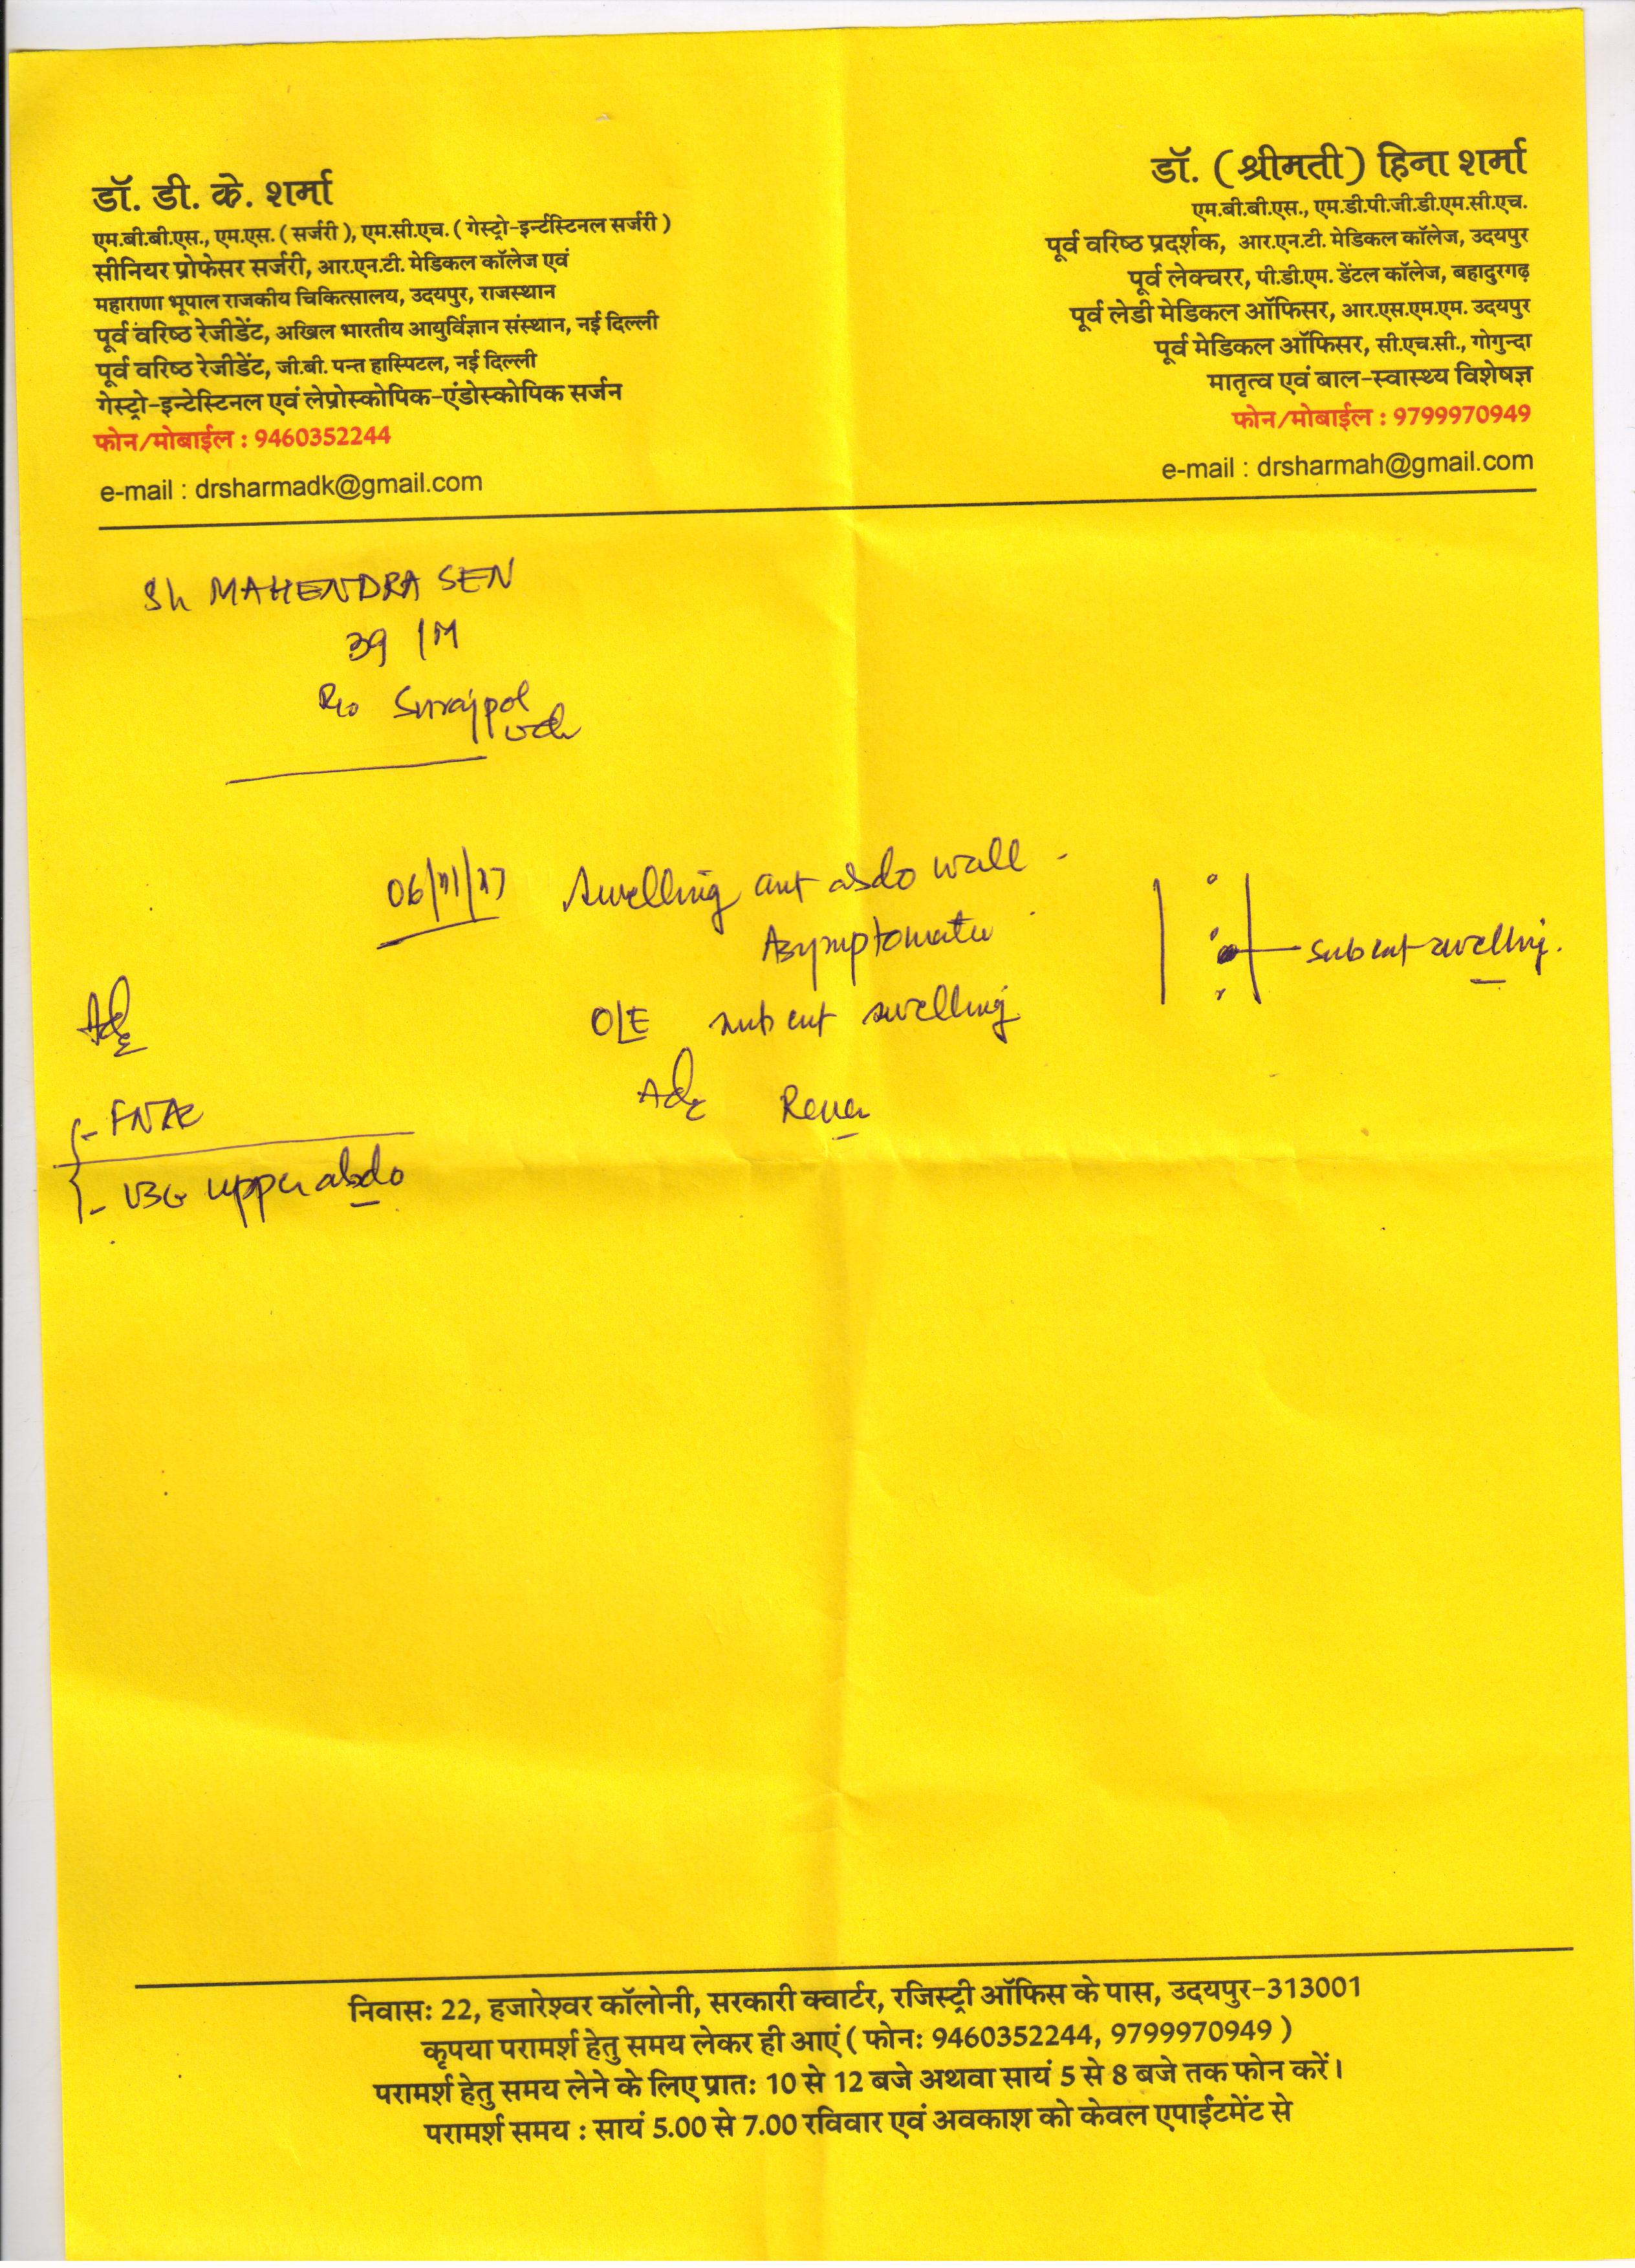 डॉ. डी. के. शर्मा
एम.बी.बी.एस., एम.एस. ( सर्जरी ), एम.सी.एच. ( गेस्ट्रो-इर्न्टेस्टिनल सर्जरी )
सीनियर प्रोफेसर सर्जरी, आर.एन.टी. मेडिकल कॉलेज एवं
महाराणा भूपाल राजकीय चिकित्सालय, उदयपुर, राजस्थान
पूर्व वरिष्ठ रेजीडेंट, अखिल भारतीय आयुर्विज्ञान संस्थान, नई दिल्ली
पूर्व वरिष्ठ रेजीडेंट, जी.बी. पन्त हास्पिटल, नई दिल्ली
गेस्ट्रो-इन्टेस्टिनल एवं लेप्रोस्कोपिक-एंडोस्कोपिक सर्जन
फोन/मोबाईल : 9460352244
e-mail : drsharmadk@gmail.com
डॉ. ( श्रीमती ) हिना शर्मा
एम.बी.बी.एस., एम.डी.पी.जी.डी.एम.सी.एच.
पूर्व वरिष्ठ प्रदर्शक, आर.एन.टी. मेडिकल कॉलेज, उदयपुर
पूर्व लेक्चरर, पी.डी.एम. डेंटल कॉलेज, बहादुरगढ़
पूर्व लेडी मेडिकल ऑफिसर, आर.एस.एम.एम. उदयपुर
पूर्व मेडिकल ऑफिसर, सी.एच.सी., गोगुन्दा
मातृत्व एवं बाल-स्वास्थ्य विशेषज्ञ
फोन/मोबाईल : 9799970949
e-mail : drsharmah@gmail.com
Sh MAHENDRA SEN
39 / M
R/o Surajpol
Swelling ant abdo wall -
Asymptomatic
O/E sub cut swelling
Sub cut swelling.
Adv
Adv
- FNAC
- USG upper abdo
निवास: 22, हजारेश्वर कॉलोनी, सरकारी क्वार्टर, रजिस्ट्री ऑफिस के पास, उदयपुर-313001
कृपया परामर्श हेतु समय लेकर ही आएं ( फोन: 9460352244, 9799970949 )
परामर्श हेतु समय लेने के लिए प्रात: 10 से 12 बजे अथवा सायं 5 से 8 बजे तक फोन करें।
परामर्श समय : सायं 5.00 से 7.00 रविवार एवं अवकाश को केवल एपाईंटमेंट से